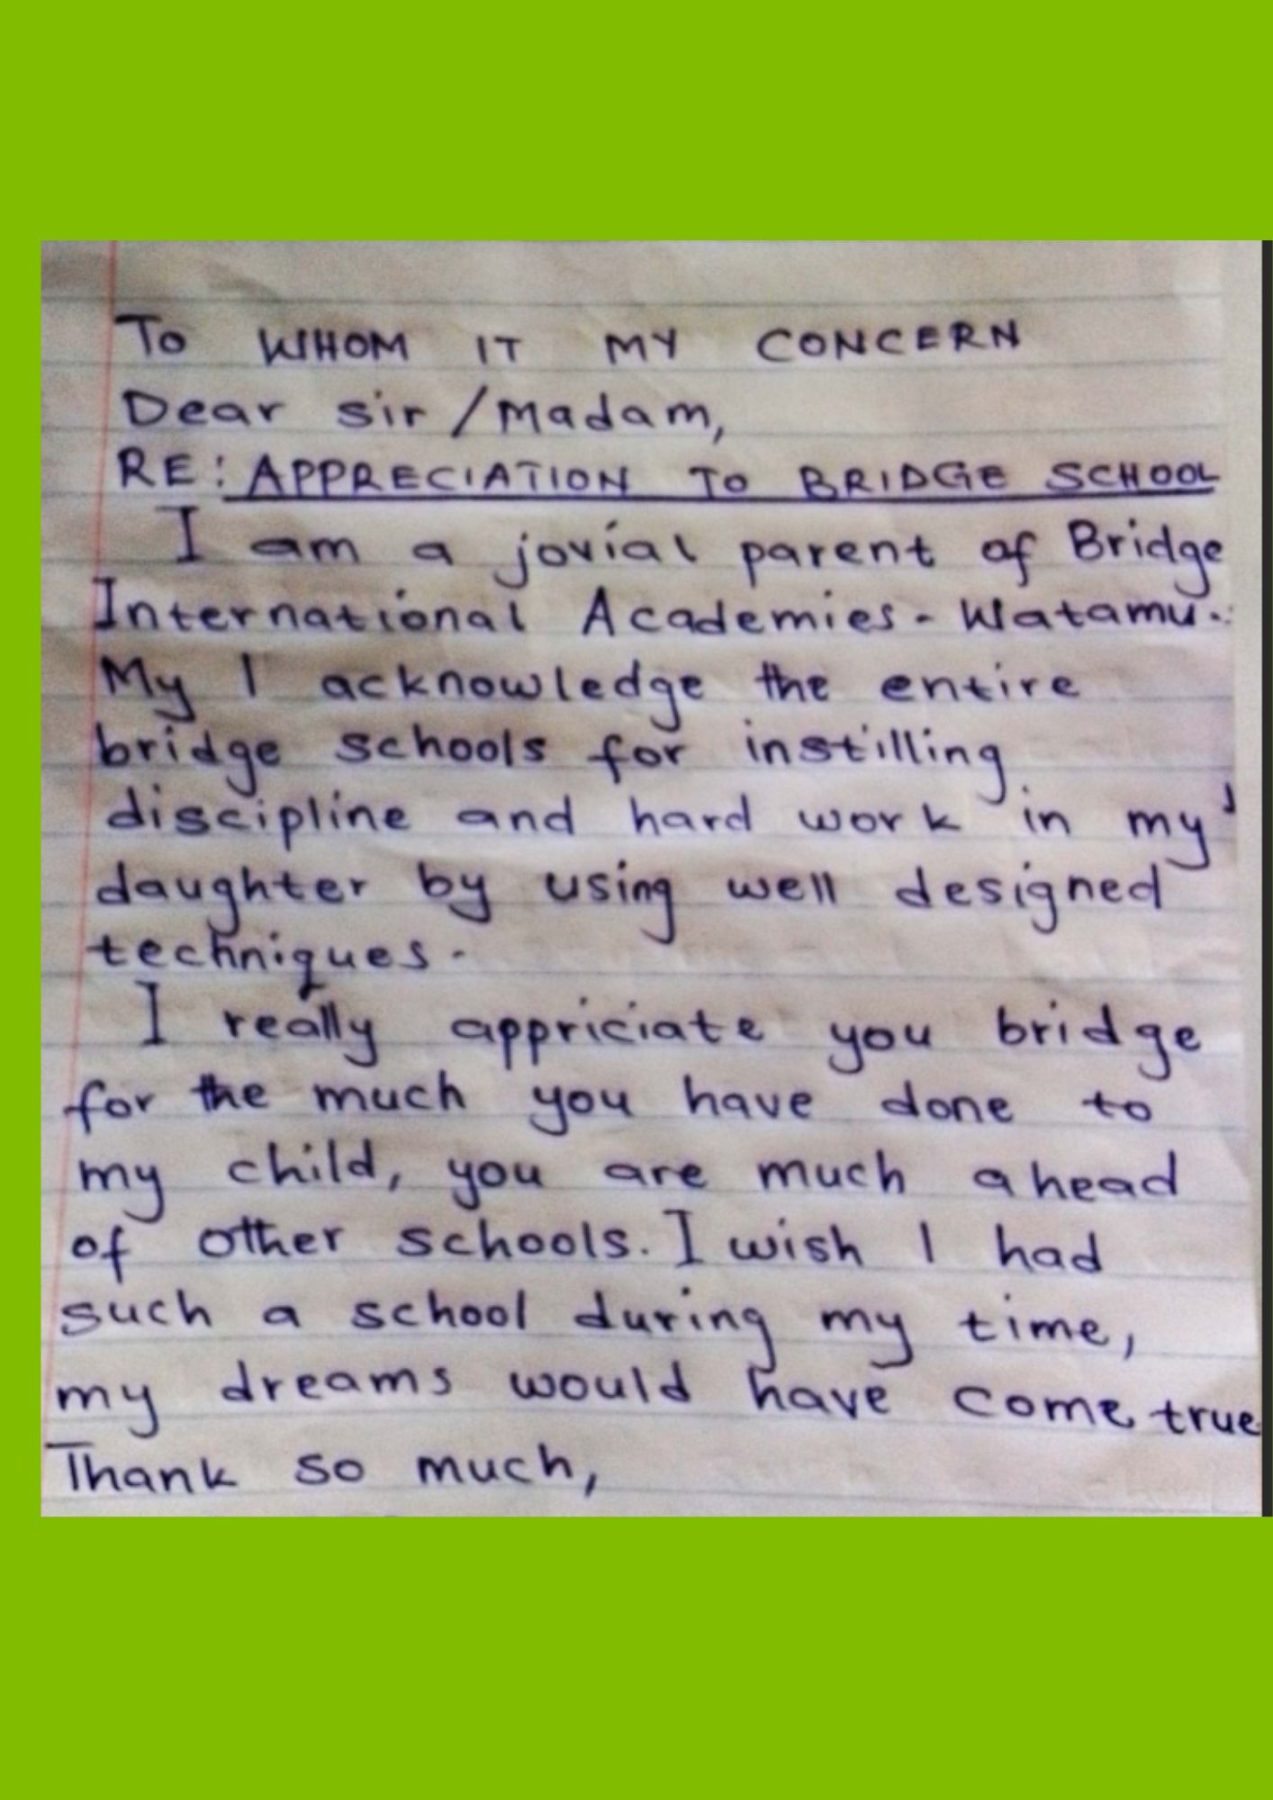 To WHOM IT MY CONCERN
Dear sir / Madam,
RE: APPRECIATION TO BRIDGE SCHOOL
I am a jovial parent of Bridge
International Academies - Watamu.
My I acknowledge the entire
bridge schools for instilling
discipline and hard work in my
daughter by using well designed
techniques.
I really appriciate you bridge
for the much you have done to
my child, you are much ahead
of other schools. I wish I had
such a school during my time,
my dreams would have come true
Thank so much,